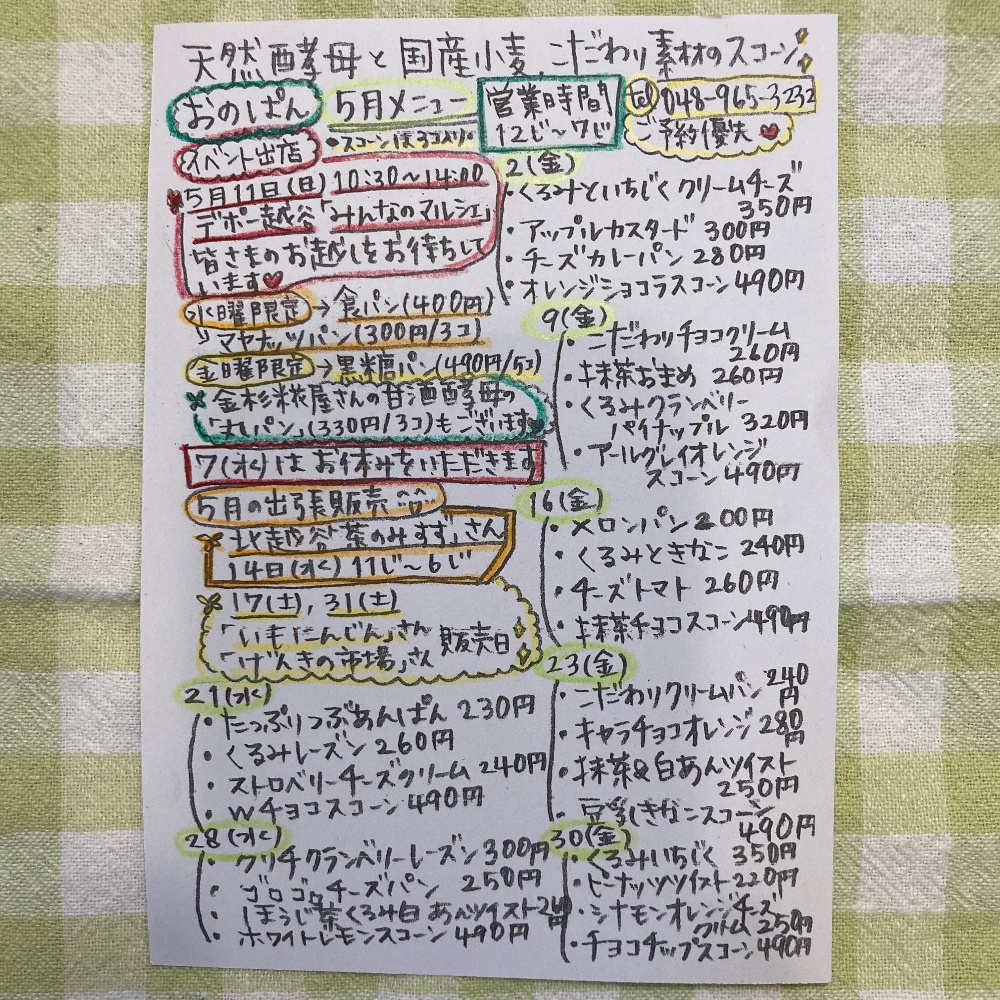 天然酵母と国産小麦、こだわり素材のスコーン
おのぱん
5月メニュー
・スコーンは3コ入り・
営業時間
12じ〜7じ
tel 048-965-3232
ご予約優先
イベント出店
5月11日(日) 10:30〜14:00
デポー越谷「みんなのマルシェ」
皆さまのお越しをお待ちして
います
水曜限定→食パン(400円)
マヤナッツパン(300円/3コ)
金曜限定→黒糖パン(490円/5コ)
金杉糀屋さんの甘酒酵母の
パン」(330円/3コ)もございます
7(水)はお休みをいただきます
5月の出張販売
北越谷「茶のみすず」さん
14日(水) 11じ〜6じ
17(土), 31(土)
「いもにんじん」さん
「げんきの市場」さん
販売日
21(水)
・たっぷりつぶあんぱん 230円
・くるみレーズン 260円
・ストロベリーチーズクリーム 240円
・Wチョコスコーン 490円
28(水)
・クリチクランベリーレーズン 300円
・ゴロゴロチーズパン 250円
・ほうじ茶くるみ白あんツイスト
・ホワイトレモンスコーン 490円
2(金)
・くるみといちじくクリームチーズ
350円
・アップルカスタード 300円
・チーズカレーパン 280円
・オレンジショコラスコーン 490円
9(金)
・こだわりチョコクリーム
260円
・抹茶おまめ 260円
・くるみクランベリー
パイナップル 320円
・アールグレイオレンジ
スコーン 490円
16(金)
・メロンパン 200円
・くるみときなこ 240円
・チーズトマト 260円
・抹茶チョコスコーン 490円
23(金)
・こだわりクリームパン 240円
・キャラチョコオレンジ 280円
・抹茶&白あんツイスト
250円
・豆乳きなこスコーン
490円
30(金)
・くるみいちじく 350円
・ピーナッツツイスト 220円
・シナモンオレンジチーズ
クリーム 250円
・チョコチップスコーン 490円